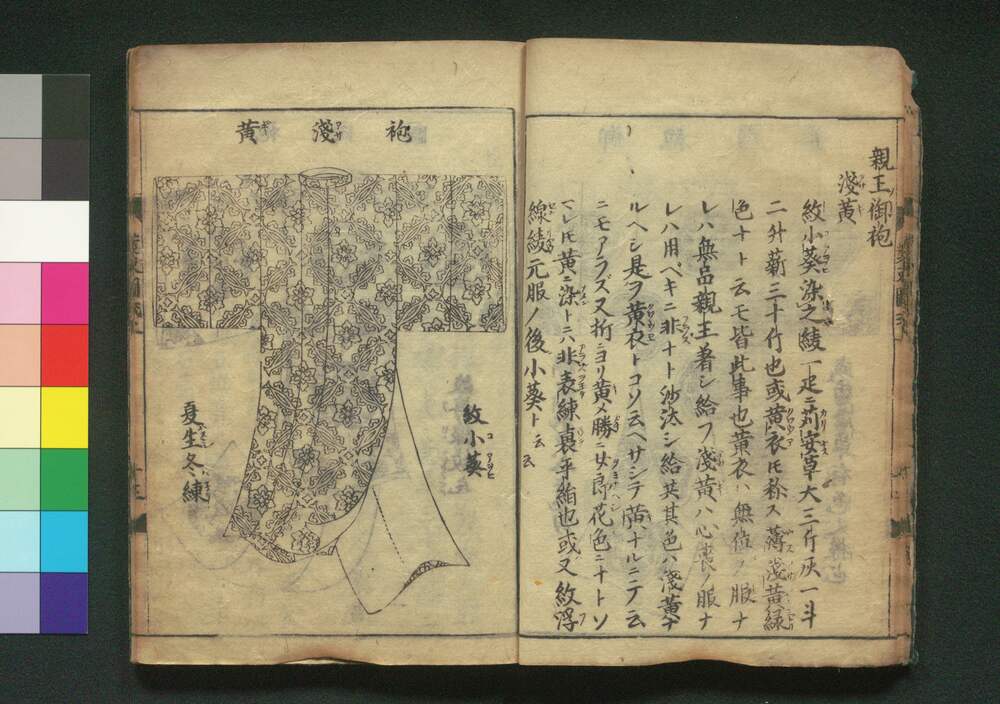 親王御袍
淺黄
紋小葵染之綾一疋ニ苅安草大三斤灰一斗
二升薪三十斤也或黄衣トモ称ス薄淺黄緑
色ナトト云モ皆此事也黄衣ハ無位ノ服ナ
レハ無品親王著シ給フ淺黄ハ心喪ノ服ナ
レハ用ベキニ非ナト沙汰シ給其其色ハ淺黄ナ
ルヘシ是ヲ黄衣トコソ云ヘサシテ黄ナルニテ云
ニモアラズ又桁ニヨリ黄メ勝ニ女郎花色ニナトソ
マレトモ黄ニ染トニハ非表練貞平絹也或又紋浮
線綾元服ノ後小葵ト云云
袍淺黄
紋小葵
夏生冬練